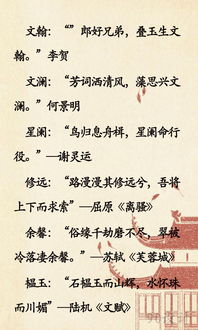 文翰：“”郎好兄弟，叠玉生文
翰。”李贺
文澜：“芳词洒清风，藻思兴文
澜。”何景明
星阑：“鸟归息舟楫，星阑命行
役。”—谢灵运
修远：“路漫漫其修远兮，吾将
上下而求索”—屈原《离骚》
余馨：“俗缘千劫磨不尽，翠被
冷落凄余馨。”—苏轼《芙蓉城》
韫玉：“石韫玉而山辉，水怀珠
而川媚”—陆机《文赋》